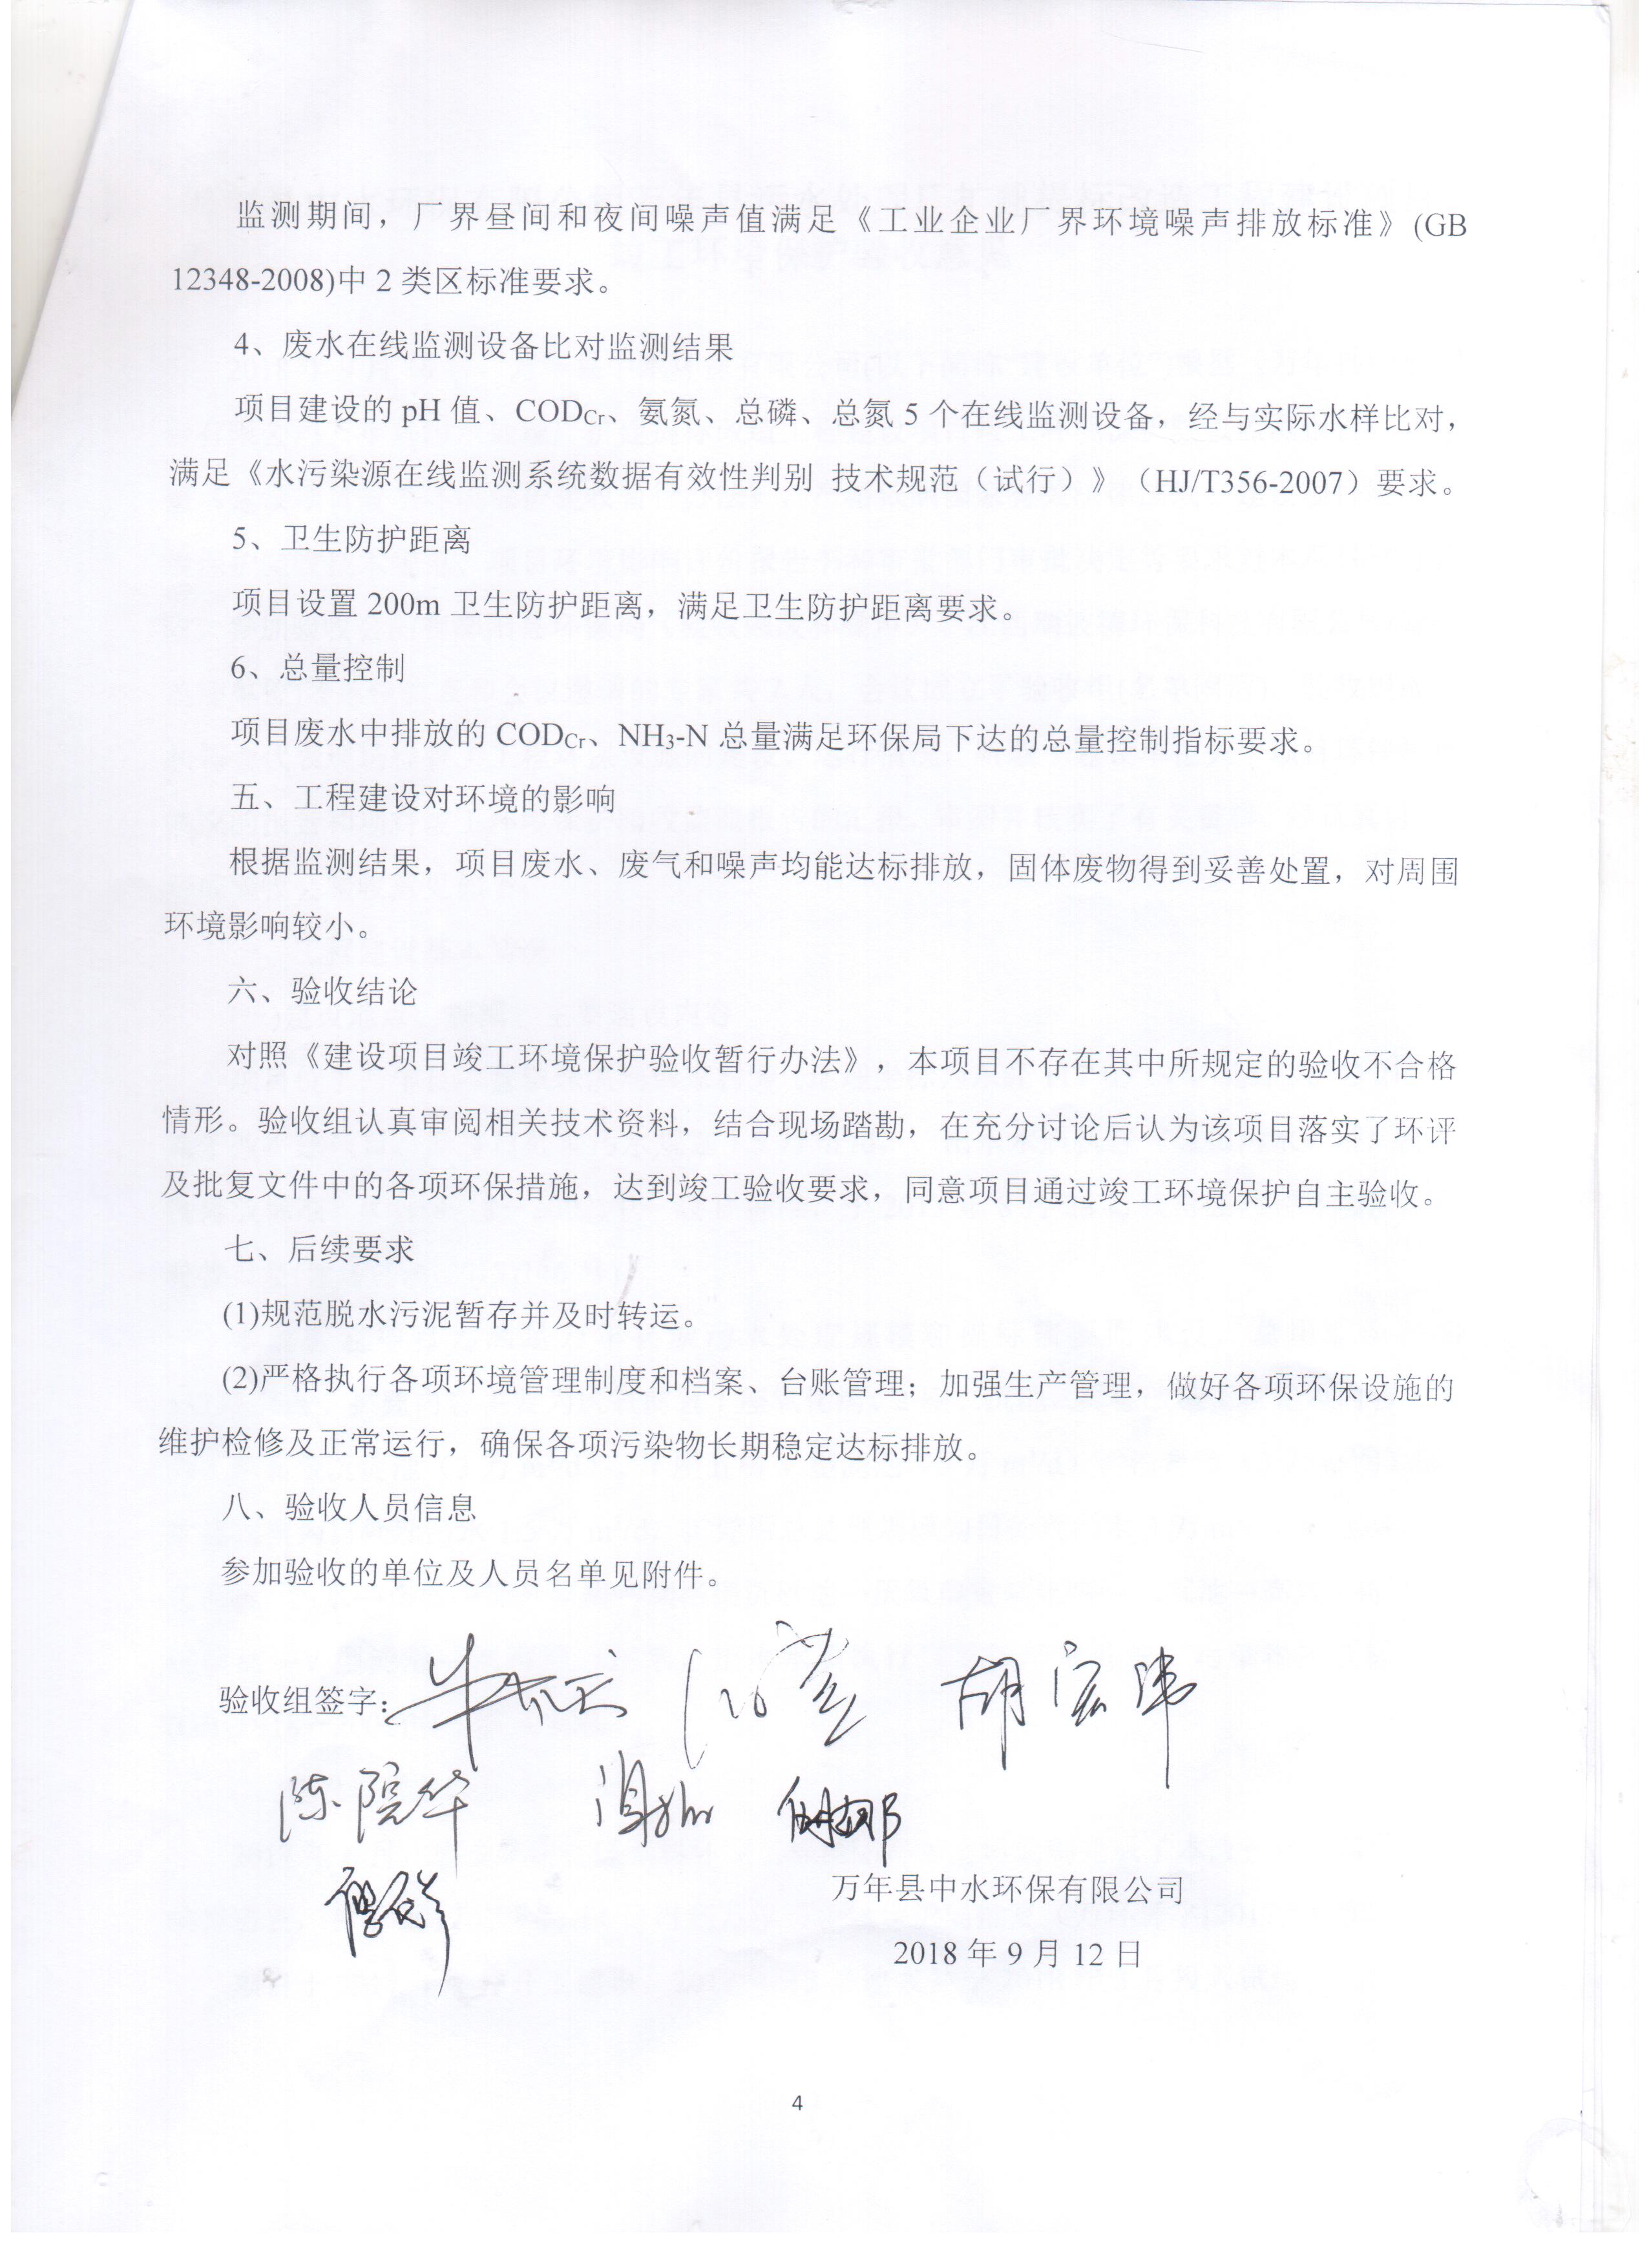 监测期间，厂界昼间和夜间噪声值满足《工业企业厂界环境噪声排放标准》(GB
12348-2008)中 2 类区标准要求。
4、废水在线监测设备比对监测结果
项目建设的 pH 值、CODCr、氨氮、总磷、总氮 5 个在线监测设备，经与实际水样比对，
满足《水污染源在线监测系统数据有效性判别 技术规范（试行）》（HJ/T356-2007）要求。
5、卫生防护距离
项目设置 200m 卫生防护距离，满足卫生防护距离要求。
6、总量控制
项目废水中排放的 CODCr、NH3-N 总量满足环保局下达的总量控制指标要求。
五、工程建设对环境的影响
根据监测结果，项目废水、废气和噪声均能达标排放，固体废物得到妥善处置，对周围
环境影响较小。
六、验收结论
对照《建设项目竣工环境保护验收暂行办法》，本项目不存在其中所规定的验收不合格
情形。验收组认真审阅相关技术资料，结合现场踏勘，在充分讨论后认为该项目落实了环评
及批复文件中的各项环保措施，达到竣工验收要求，同意项目通过竣工环境保护自主验收。
七、后续要求
(1)规范脱水污泥暂存并及时转运。
(2)严格执行各项环境管理制度和档案、台账管理；加强生产管理，做好各项环保设施的
维护检修及正常运行，确保各项污染物长期稳定达标排放。
八、验收人员信息
参加验收的单位及人员名单见附件。
验收组签字： 胡宏玮
陈院华
万年县中水环保有限公司
2018 年 9 月 12 日
4